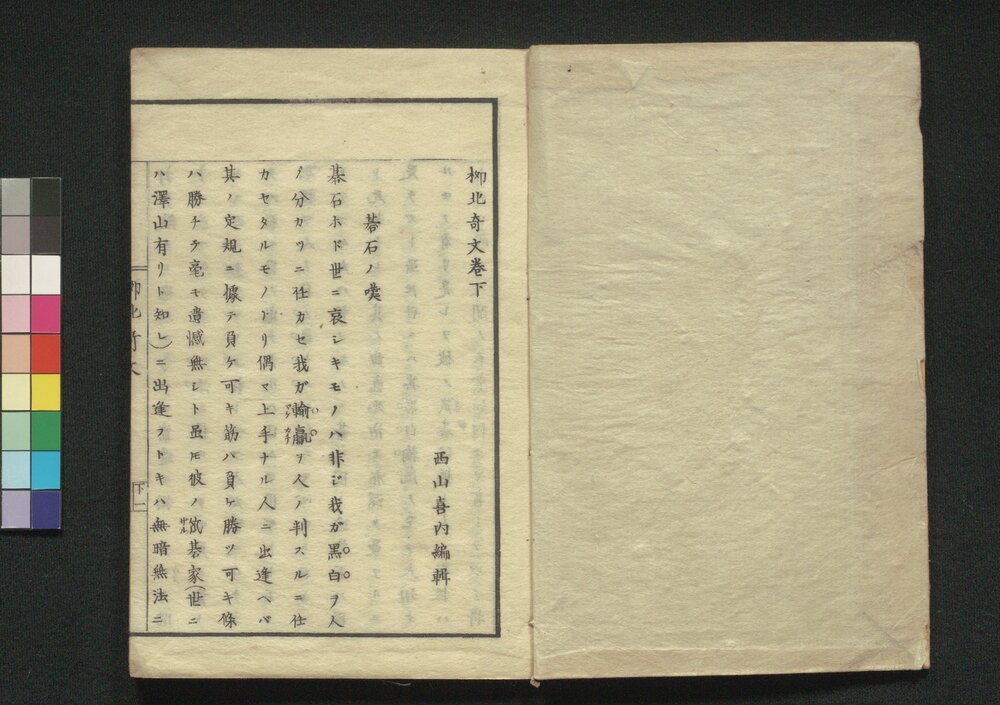 柳北奇文卷下
西山喜内編輯
碁石ノ嘆
碁石ホド世ニ哀シキモノハ非ジ我ガ黒白ヲ人
ノ分カツニ任カセ我ガ輸贏ヲ人ノ判スルニ任
カセタルモノナリ偶マ上手ナル人ニ出逢ヘバ
其ノ定規ニ據テ負ケ可キ筋ハ負ケ勝ツ可キ條
ハ勝チテ毫モ遺憾無シト虽𪜈彼ノ笊碁家(世ニ
ハ澤山有リト知レ)ニ出逢フトキハ無暗無法ニ
柳北奇文
下一